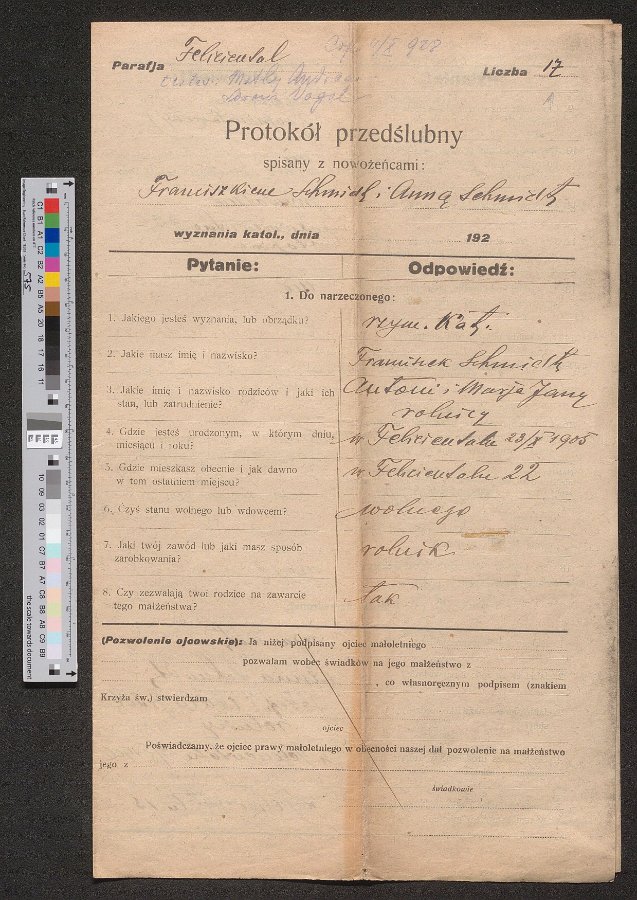 Parafja Feliciental
Liczba 17
Protokół przedślubny
spisany z nowożeńcami:
Franciszkiem Schmidt i Anną Schmidt
wyznania katol., dnia 192
Pytanie: Odpowiedź:
1. Do narzeczonego:
1. Jakiego jesteś wyznania, lub obrządku? rzym. kat.
2. Jakie masz imię i nazwisko? Franciszek Schmidt
3. Jakie imię i nazwisko rodziców i jaki ich Antoni i Marja Jany
stan, lub zatrudnienie? rolnicy
4. Gdzie jesteś urodzonym, w którym dniu, w Felicientalu 23/X 1905
miesiącu i roku?
5. Gdzie mieszkasz obecnie i jak dawno w Felicientalu 22
w tom ostatniem miejscu?
6. Czyś stanu wolnego lub wdowcem? wolnego
7. Jaki twój zawód lub jaki masz sposób rolnik
zarobkowania?
8. Czy zezwalają twoi rodzice na zawarcie tak
tego małżeństwa?
(Pozwolenie ojcowskie): Ja niżej podpisany ojciec małoletniego
pozwalam wobec świadków na jego małżeństwo z
, co własnoręcznym podpisem (znakiem
Krzyża św.) stwierdzam
ojciec
Poświadczamy, że ojciec prawy małoletniego w obecności naszej dał pozwolenie na małżeństwo
jego z
świadkowie